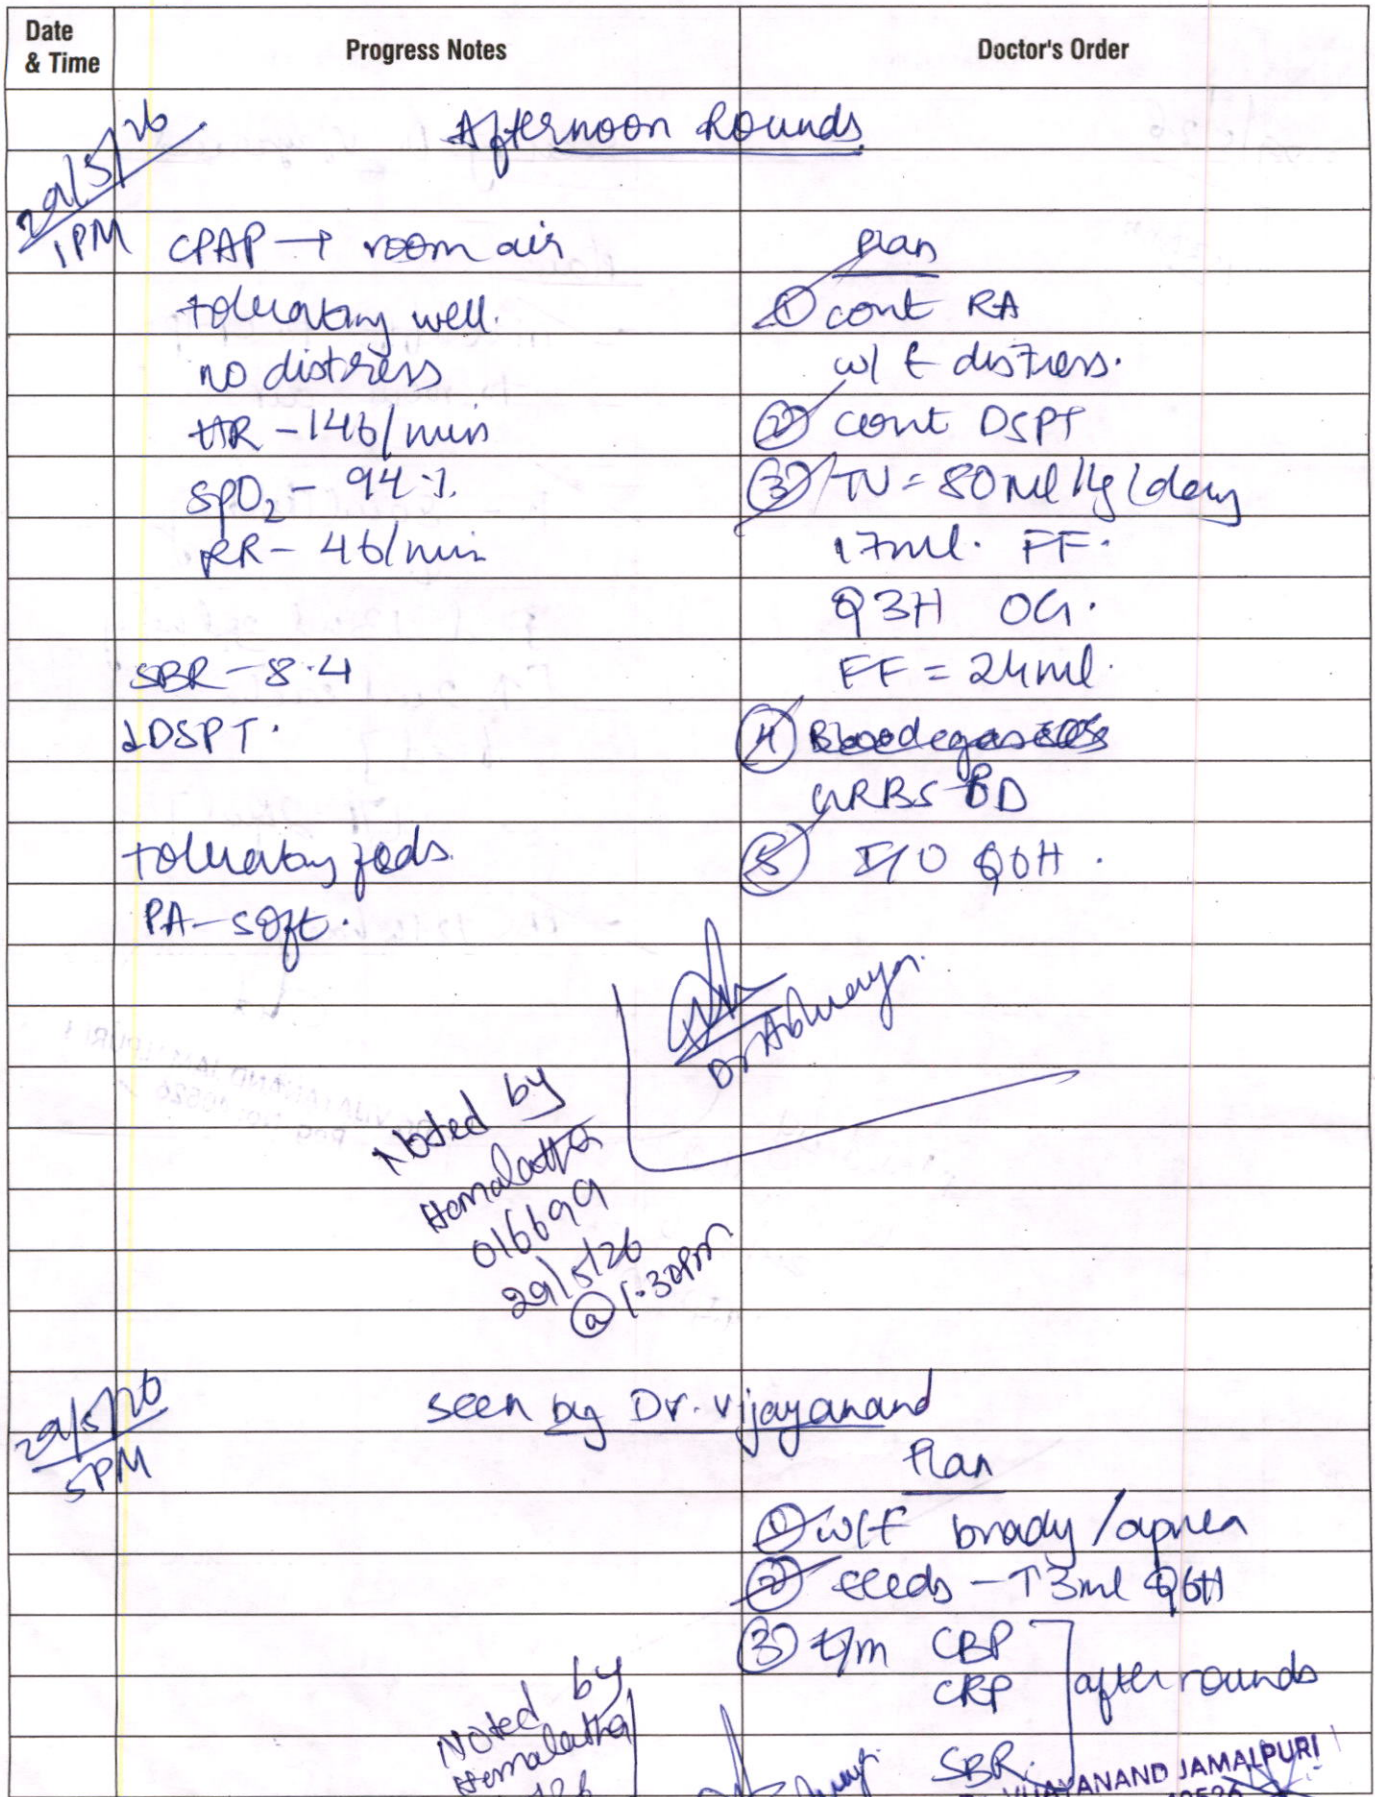 Date & Time Progress Notes Doctor's Order
29/5/26 Afternoon Rounds
1PM CPAP → room air Plan
tolerating well. ① cont RA
no distress w/f distress.
HR - 146/min ② cont DSPT
SpO2 - 94 % ③ TV = 80 ml/kg/day
RR - 46/min 17ml. FF.
Q3H OG.
SBR - 8.4 FF = 24ml.
↓DSPT. ④
GRBS BD
tolerating feeds. ⑤ I/O Q6H.
PA - soft.
Dr Abhinaya
Noted by
Hemalatha
016699
29/5/26
@ 1.30pm
29/5/26 seen by Dr. Vijayanand
5PM Plan
① w/f brady / apnea
② feeds - ↑ 3ml Q6H
③ t/m CBP
CRP after rounds
SBR.
Noted by
Hemalatha
VIJAYANAND JAMALPURI